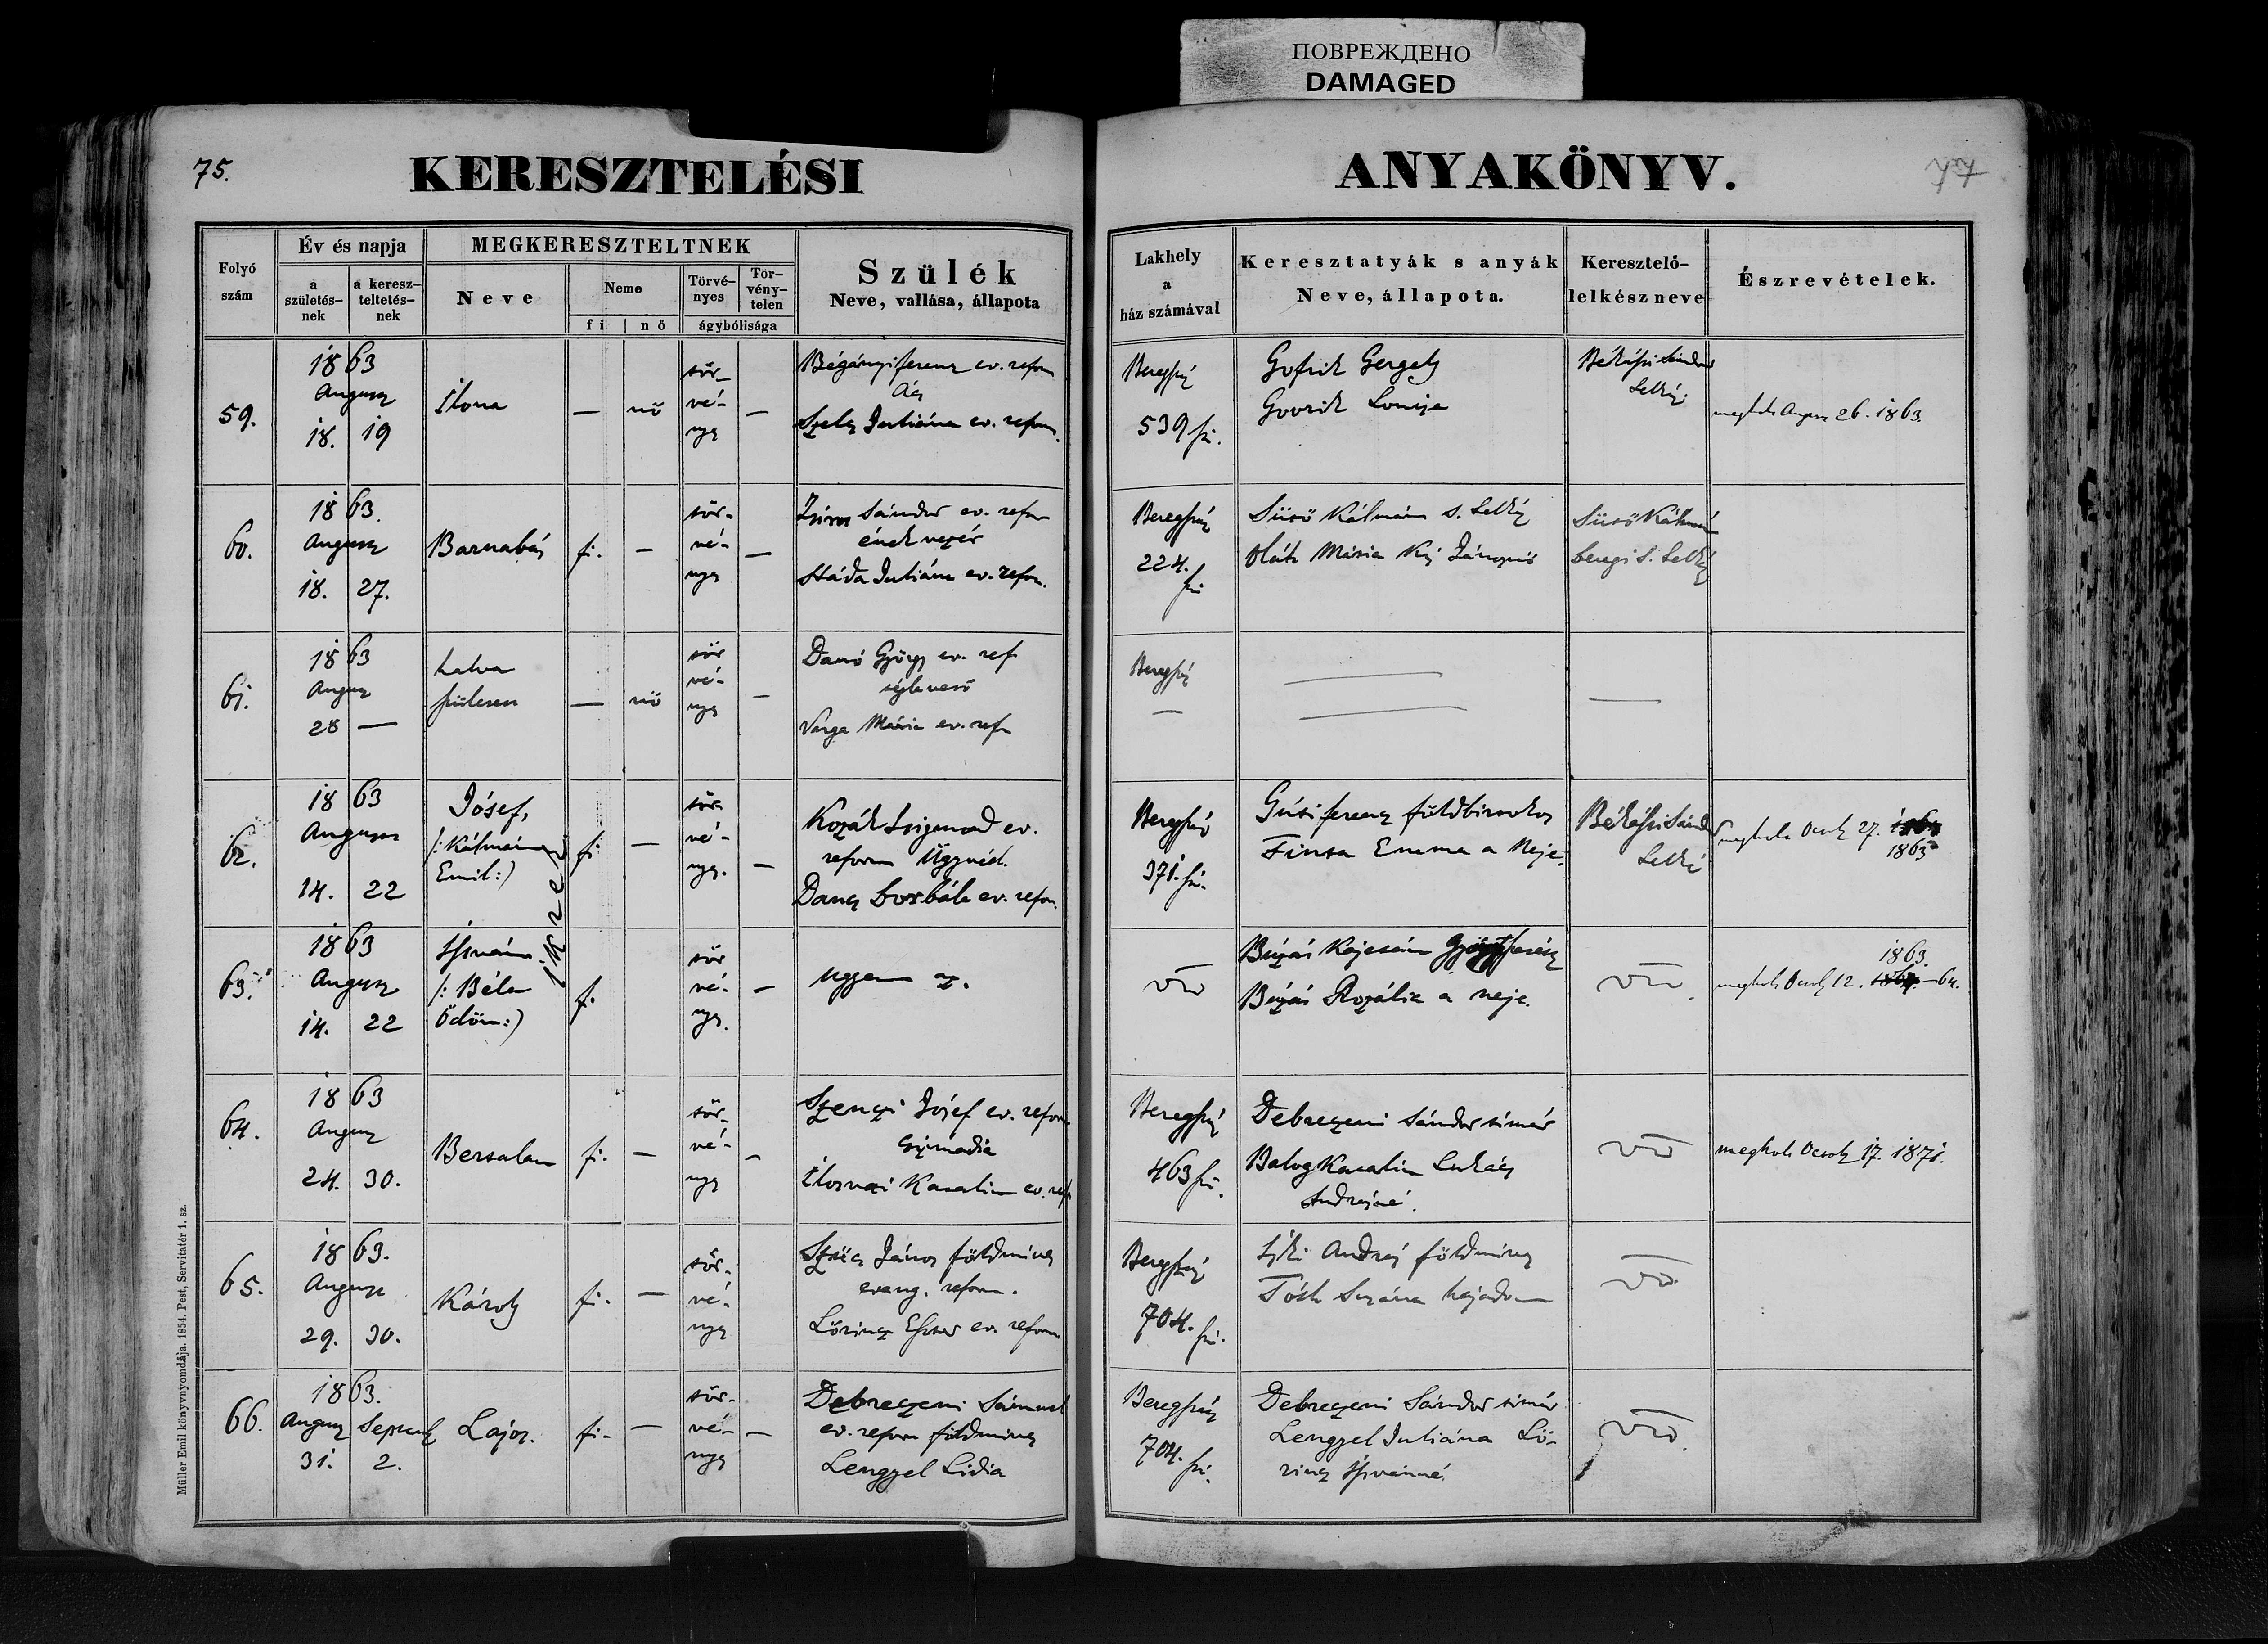 ПОВРЕЖДЕНО
DAMAGED
75.
KERESZTELÉSI
ANYAKÖNYV.
77
Folyó szám
Év és napja
a születés-nek
a keresz-teltetés-nek
MEGKERESZTELTNEK
Neve
Neme
fi
nő
Törvé-nyes
Tör-vény-telen
ágybólisága
Szülék
Neve, vallása, állapota
Lakhely
a
ház számával
Keresztatyák s anyák
Neve, állapota.
Keresztelő-
lelkész neve
Észrevételek.
59.
1863
August
18. 19
Ilona
—
nő
tör-
vé-
nys
—
Bégányi ferenz ev. reform
Ács
Juliána ev. reform.
Beregszász
539. sz.
Gergely
Lovisa
Békássi Sándor
Lelkész.
megholt August 26. 1863.
60.
1863.
August
18. 27.
Barnabás
fi.
—
tör-
vé-
nys
—
Sándor ev. reform
ének vezér
Juliána ev. reform.
Beregszász
224.
sz.
Sütő Kálmán s. Lelkész
Oláh Mária Kis Jánosné
Sütő Kálmán
s. Lelkész
61.
1863
August
28 —
halva
született
—
nő
tör
vé-
nys
—
Danó György ev. ref
téglavető
Varga Mária ev. ref
Beregszász
—
62.
1863
August
14. 22
Jósef,
/: Kálmán
Emil :)
ikrek
fi
—
tör-
vé-
nys.
—
Kozák Zsigmond ev.
reform Ügyvéd.
Dancs Borbála ev. reform.
Beregszász
371. sz.
Gúti ferencz földbirtokos
Finta Emma a Neje.
Békássi Sándor
Lelkész
megholt Octob 27. 1864
1863
63.
1863
August
14. 22
István.
/: Béla
Ödön :)
f.
tör
vé-
nys.
—
ugyan az.
Búzás
Búzás Rozália a neje.
1863.
megholt Octob 12. 1864. —64.
64.
1863
August
24. 30.
Bertalan
fi.
—
tör-
vé-
nys
—
Szenczi Jósef ev. reform
Csizmadia
Ilosvai Katalin ev. ref
Beregszász
463 sz.
Debreczeni Sándor timár
Balog Katalin Lukács
Andrásné.
megholt Octob 17. 1871.
65.
1863.
August
29. 30.
Károly
fi.
—
tör-
vé-
nys
Szűcs János földmíves
evang. reform.
Lőrincz Eszter ev. reform
Beregszász
704. sz.
András földmíves
Tóth Suzána hajadon
66.
1863.
August Septemb
31. 2.
Lajos.
fi-
—
tör-
vé-
nys
—
Debreczeni Sámuel
ev. reform földmíves
Lengyel Lidia
Beregszász
704. sz.
Debreczeni Sándor timár
Lengyel Juliána Lő-
rincz Istvánné.
Müller Emil könyvnyomdája. 1854. Pest, Servitatér 1. sz.